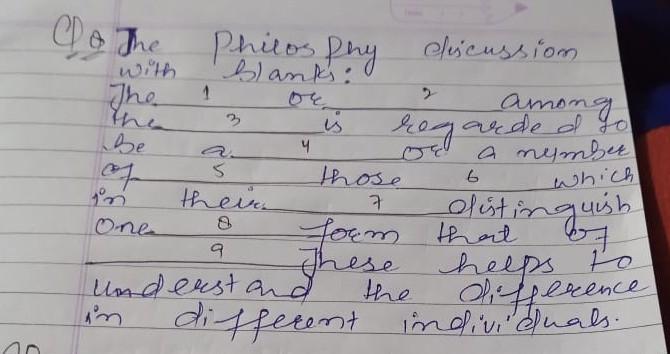 Q8 The Philosphy discussion
with blanks:
The 1 or 2 among
the 3 is regarded to
be a 4 or a number
of 5 those 6 which
in their 7 distinguish
one 8 form that of
9 These helps to
understand the difference
in different individuals.